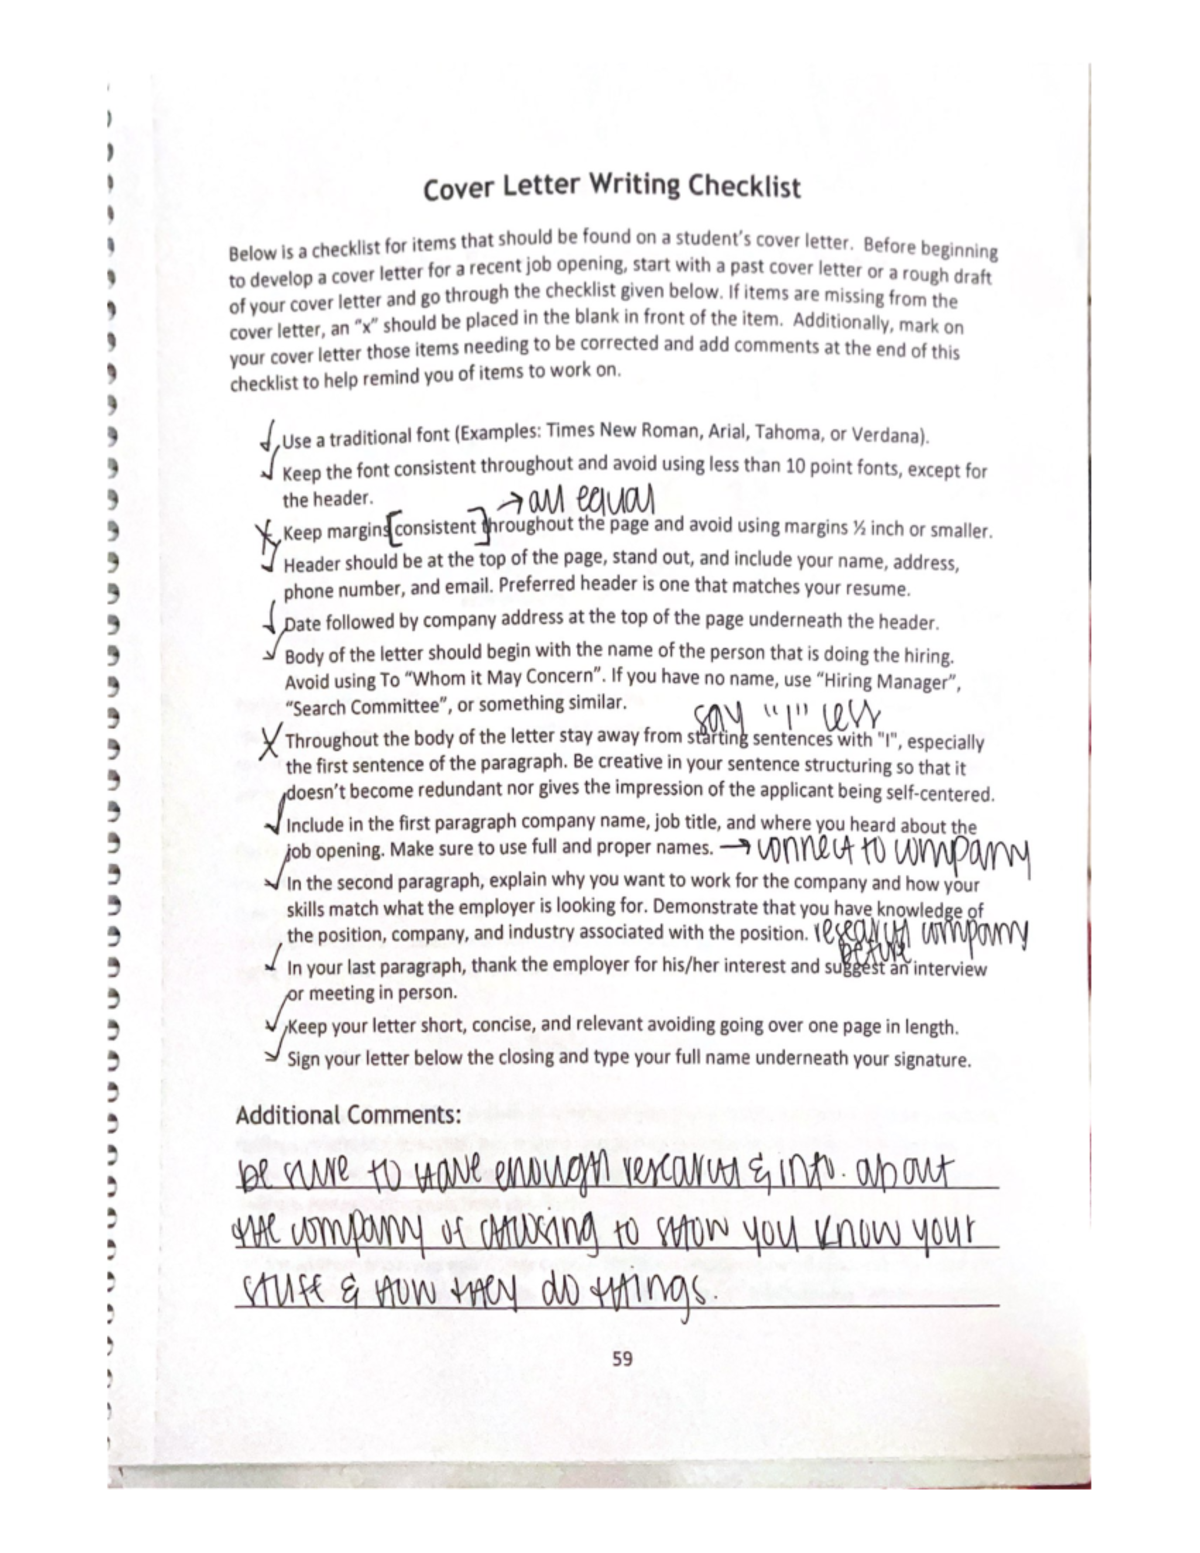 Cover Letter Writing Checklist
Below is a checklist for items that should be found on a student's cover letter. Before beginning
to develop a cover letter for a recent job opening, start with a past cover letter or a rough draft
of your cover letter and go through the checklist given below. If items are missing from the
cover letter, an "x" should be placed in the blank in front of the item. Additionally, mark on
your cover letter those items needing to be corrected and add comments at the end of this
checklist to help remind you of items to work on.
Use a traditional font (Examples: Times New Roman, Arial, Tahoma, or Verdana).
Keep the font consistent throughout and avoid using less than 10 point fonts, except for
the header.
→ all equal
X Keep margins [consistent] throughout the page and avoid using margins ½ inch or smaller.
Header should be at the top of the page, stand out, and include your name, address,
phone number, and email. Preferred header is one that matches your resume.
Date followed by company address at the top of the page underneath the header.
Body of the letter should begin with the name of the person that is doing the hiring.
Avoid using To "Whom it May Concern". If you have no name, use "Hiring Manager",
"Search Committee", or something similar.
say "I" less
X Throughout the body of the letter stay away from starting sentences with "I", especially
the first sentence of the paragraph. Be creative in your sentence structuring so that it
doesn't become redundant nor gives the impression of the applicant being self-centered.
Include in the first paragraph company name, job title, and where you heard about the
job opening. Make sure to use full and proper names. → connect to company
In the second paragraph, explain why you want to work for the company and how your
skills match what the employer is looking for. Demonstrate that you have knowledge of
the position, company, and industry associated with the position. research company
before
In your last paragraph, thank the employer for his/her interest and suggest an interview
or meeting in person.
Keep your letter short, concise, and relevant avoiding going over one page in length.
Sign your letter below the closing and type your full name underneath your signature.
Additional Comments:
be sure to have enough research & info. about
the company of choosing to show you know your
stuff & how they do things.
59